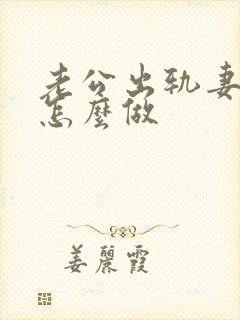 老公出轨妻
怎麼做
姜麗霞